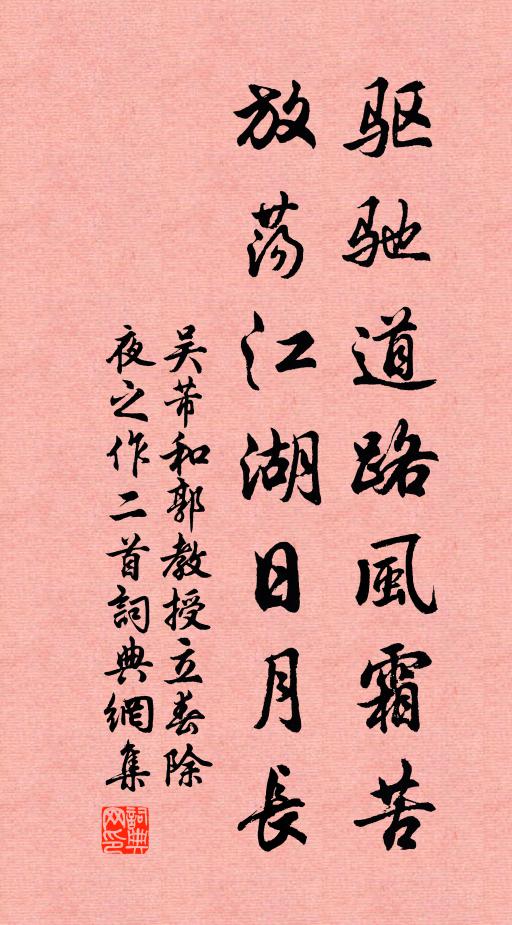 驱驰道路風霜苦
放荡江湖日月長
吴芾和郭教授立春除
夜之作二首詞典網集
詞典网印